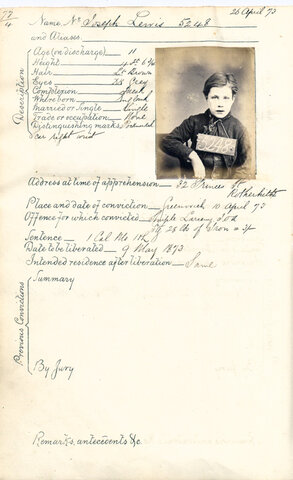 77/4
26 April 73
Name No. Joseph Lewis 5248
and Aliases.
Description
Age (on discharge) 11
Height
Hair Lt Brown
Eyes Dk Grey
Complexion Fresh
Where born England
Married or Single Single
Trade or occupation None
Distinguishing marks
over right wrist
5248
Address at time of apprehension 32 Princes St
Rotherhithe
Place and date of conviction Greenwich 10 April 73
Offence for which convicted Simple Larceny
28 lb of Iron
Sentence 1 Cal Mo
Date to be liberated 9 May 1873
Intended residence after liberation Same
Previous Convictions
Summary
By Jury
Remarks, antecedents &c.